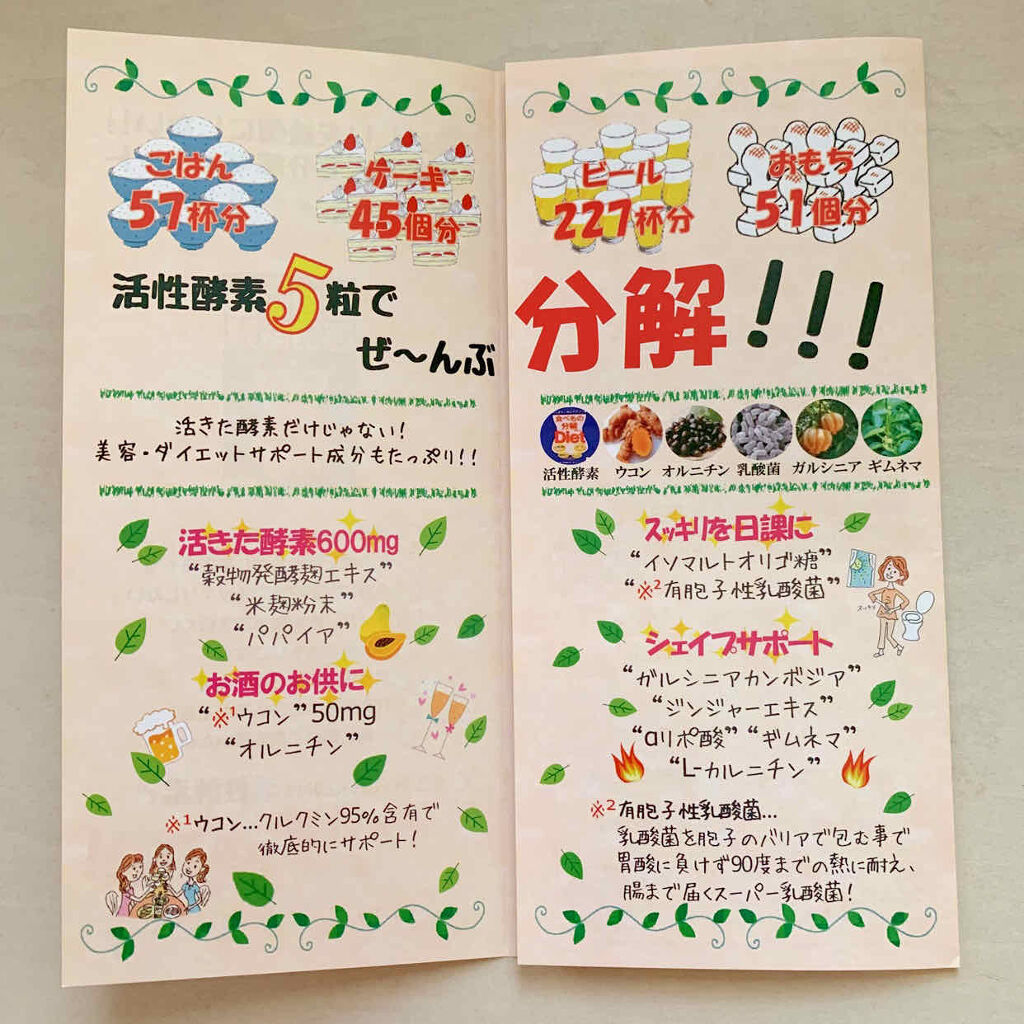 ごはん
57杯分
ケーキ
45個分
活性酵素5粒で
ぜ〜んぶ
活きた酵素だけじゃない!
美容・ダイエットサポート成分もたっぷり!!
活きた酵素600mg
“穀物発酵麹エキス”
“米麹粉末”
“パパイア”
お酒のお供に
“※1ウコン”50mg
“オルニチン”
※1ウコン...クルクミン95%含有で
徹底的にサポート!
ビール
227杯分
おもち
51個分
分解!!!
食べもの
分解
Diet
活性酵素 ウコン オルニチン 乳酸菌 ガルシニア ギムネマ
スッキリを日課に
“イソマルトオリゴ糖”
“※2有胞子性乳酸菌”
スッキリ
シェイプサポート
“ガルシニアカンボジア”
“ジンジャーエキス”
“αリポ酸” “ギムネマ”
“L-カルニチン”
※2有胞子性乳酸菌...
乳酸菌を胞子のバリアで包む事で
胃酸に負けず90度までの熱に耐え、
腸まで届くスーパー乳酸菌!